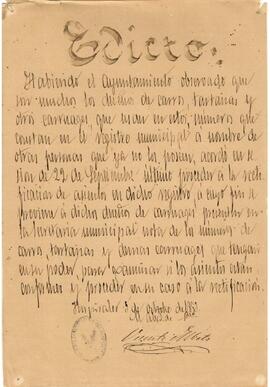 Edicto.
Habiendo el Ayuntamiento observado que
son muchos los dueños de carros, tartanas y
otros carruages que usan en estos números que
constan en el registro municipal a nombre de
otras personas que ya no los poseen, acordó en se
sion de 22 de Septiembre último proceder a la recti
ficación de asientos en dicho registro a cuyo fin se
previene a dichos dueños de carruages presenten en
la Secretaria municipal nota de los números de
carros, tartanas y demas carruages que tengan
en su poder, para examinar si los asientos están
conformes y proceder en su caso a la rectificación.
3 de Octubre de